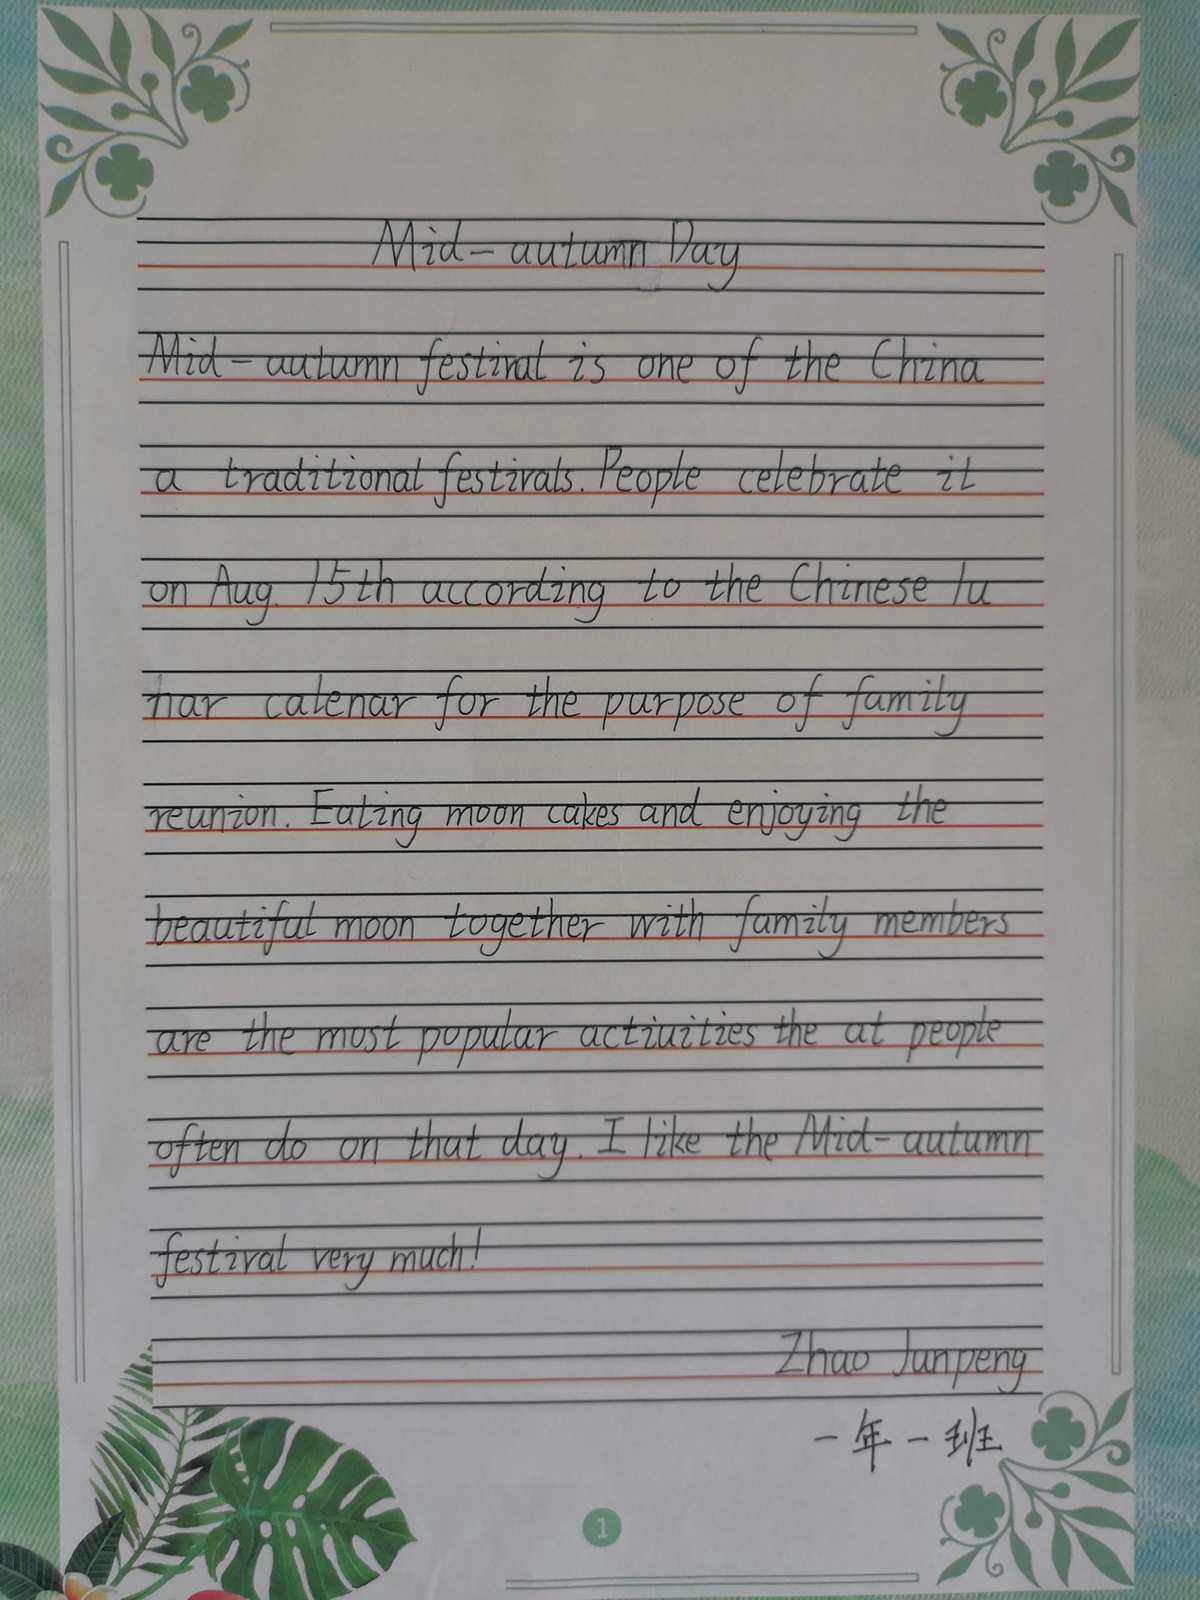 Mid-autumn Day
Mid-autumn festival is one of the China
a traditional festivals. People celebrate it
on Aug. 15th according to the Chinese lu
nar calenar for the purpose of family
reunion. Eating moon cakes and enjoying the
beautiful moon together with family members
are the most popular actiuities the at people
often do on that day. I like the Mid-autumn
festival very much!
Zhao Junpeng
一年一班
1